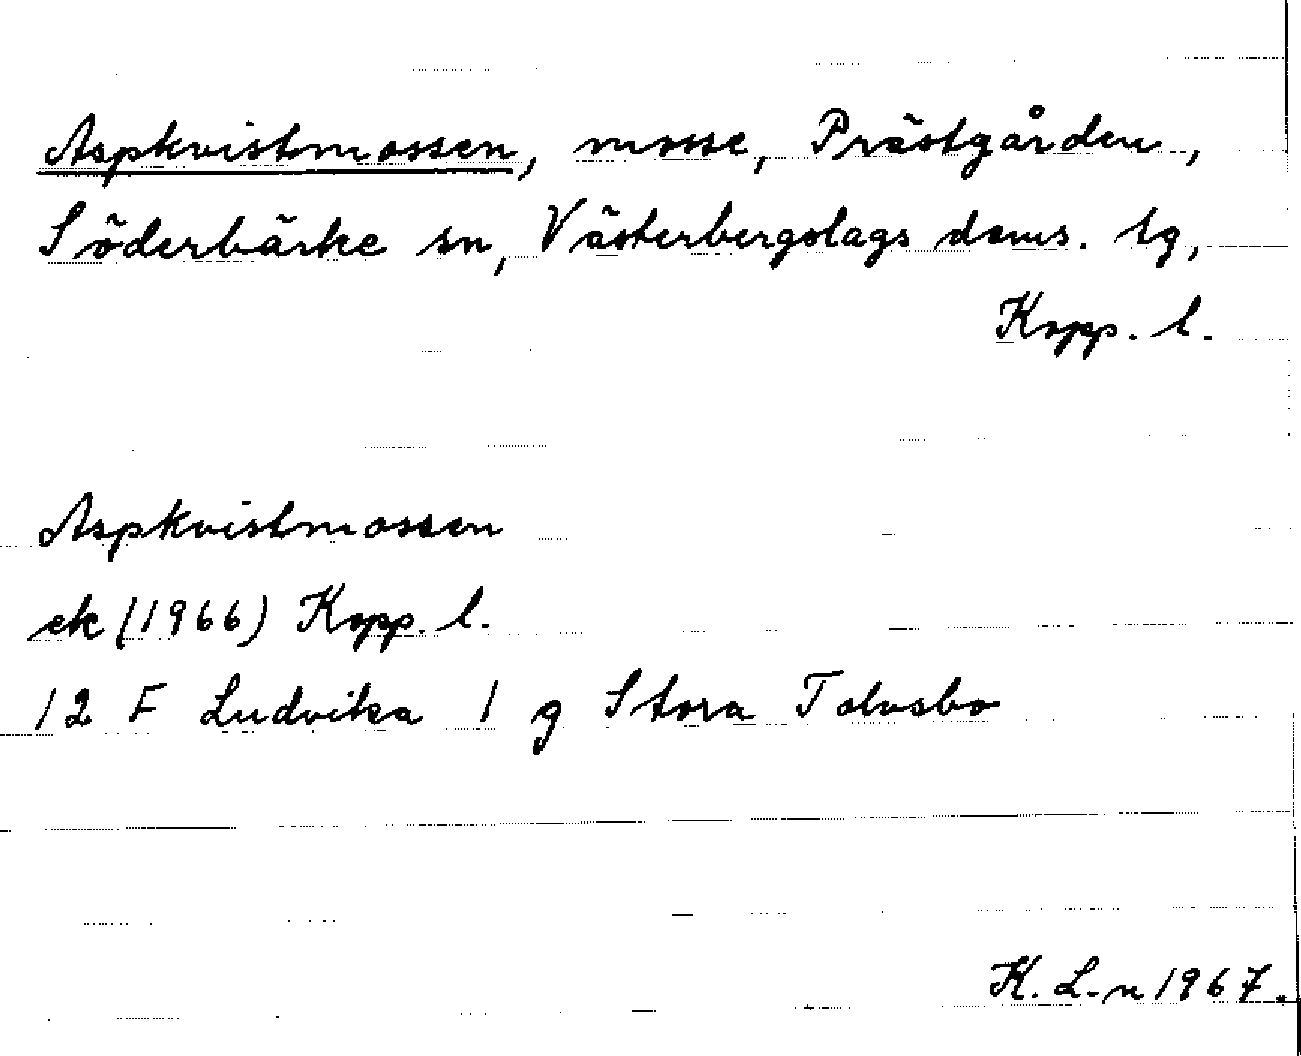 Aspkvistmossen, mosse, Prästgården,
Söderbärke sn, Västerbergslags doms. lg,
Kopp. l.
Aspkvistmossen
ek (1966) Kopp. l.
12 F Ludvika 1 g Stora Tolvsbo
K. L-n 1967.